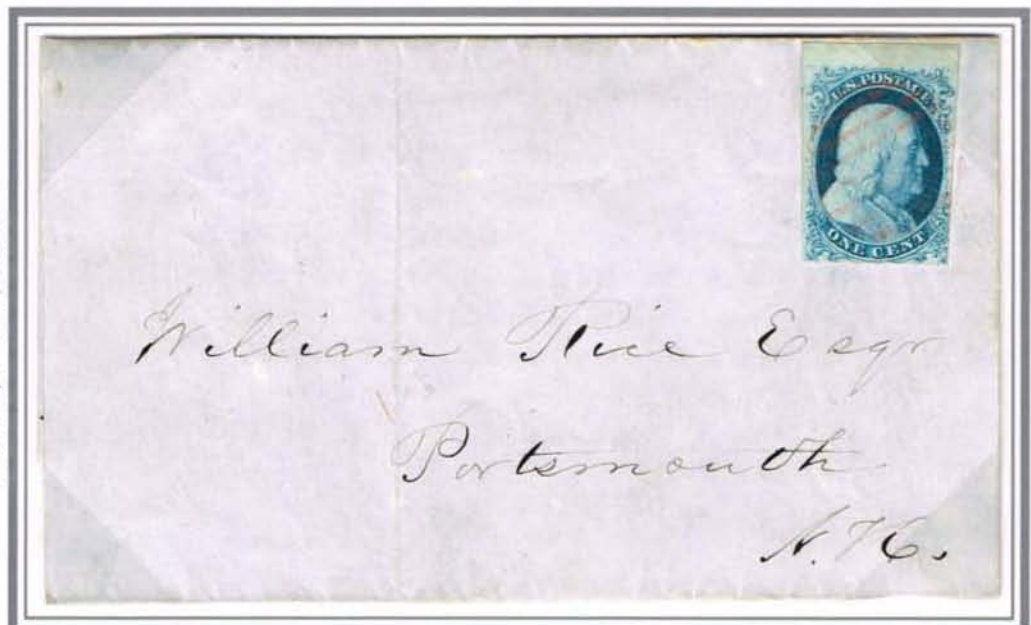 U.S. POSTAGE
ONE CENT
William Rice Esqr
Portsmouth
N.H.